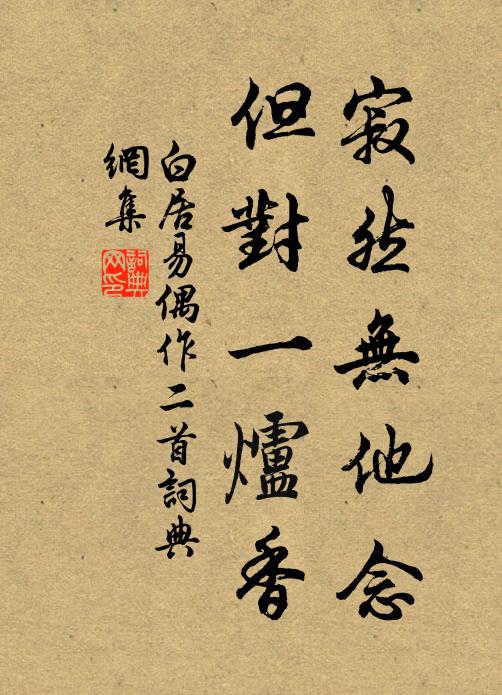 寂然無他念
但對一爐香
白居易偶作二首詞典
網集
詞典
网印